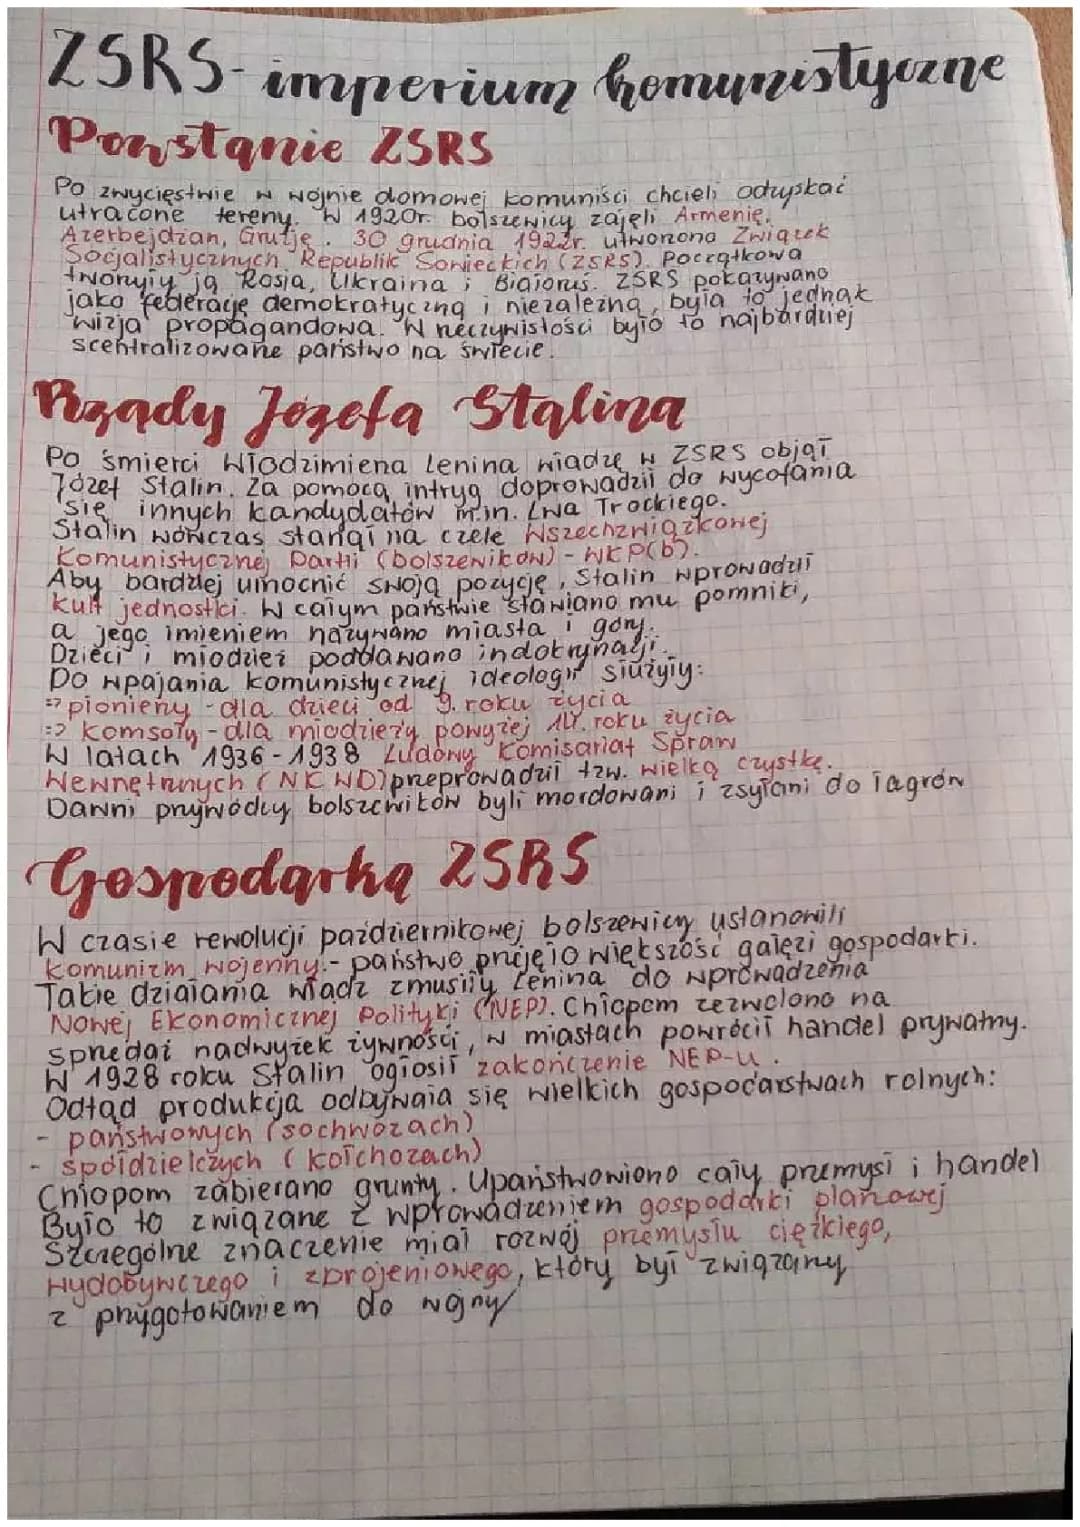 ZSRS - imperium komunistyczne
Powstanie ZSRS
Po zwycięstwie w wojnie domowej komuniści chcieli odzyskać
utracone tereny. W 1920r. bolszewicy zajęli Armenię,
Azerbejdżan, Gruzję. 30 grudnia 1922r. utworzono Związek
Socjalistycznych Republik Sowieckich (ZSRS). Początkowa
tworzyły ją Rosja, Ukraina i Białoruś. ZSRS pokazywano
jako federację demokratyczną i niezależną, była to jednak
wizja propagandowa. W rzeczywistości było to najbardziej
scentralizowane państwo na świecie.
Rządy Józefa Stalina
Po śmierci Włodzimierza Lenina władzę w ZSRS objął
Józef Stalin. Za pomocą intryg doprowadził do wycofania
się innych kandydatów m.in. Lwa Trockiego.
Stalin wówczas stanął na czele Wszechzwiązkowej
Komunistycznej Partii (bolszewików) - WKP(b).
Aby bardziej umocnić swoją pozycję, Stalin wprowadził
kult jednostki. W całym państwie stawiano mu pomniki,
a jego imieniem nazywano miasta i góry.
Dzieci i młodzież poddawano indoktrynacji.
Do wpajania komunistycznej ideologii służyły:
=> pionierzy - dla dzieci od 9. roku życia
=> Komsoły - dla młodzieży powyżej 14. roku życia
W latach 1936 - 1938 Ludowy Komisariat Spraw
Wewnętrznych (NKWD) przeprowadził tzw. wielką czystkę.
Dawni przywódcy bolszewików byli mordowani i zsyłani do łagrów
Gospodarka ZSRS
W czasie rewolucji październikowej bolszewicy ustanowili
komunizm wojenny.- państwo przejęło większość gałęzi gospodarki.
Takie działania władz zmusiły Lenina do wprowadzenia
Nowej Ekonomicznej Polityki (NEP). Chłopom zezwolono na
sprzedaż nadwyżek żywności, w miastach powrócił handel prywatny.
W 1928 roku Stalin ogłosił zakończenie NEP-u.
Odtąd produkcja odbywała się wielkich gospodarstwach rolnych:
- państwowych (sochwozach)
- spółdzielczych (kołchozach)
Chłopom zabierano grunty. Upaństwowiono cały przemysł i handel
Było to związane z wprowadzeniem gospodarki planowej
Szczególne znaczenie miał rozwój przemysłu ciężkiego,
wydobywczego i zbrojeniowego, który był związany
z przygotowaniem do wojny